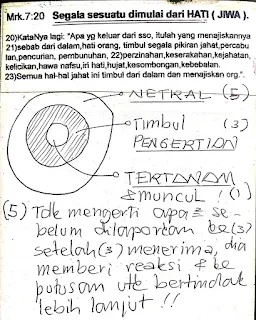 Mrk.7:20 Segala sesuatu dimulai dari HATI ( JIWA ).
20)KataNya lagi: "Apa yg keluar dari sso, itulah yang menajiskannya
21)sebab dari dalam,hati orang, timbul segala pikiran jahat,percabu
lan,pencurian, pembunuhan, 22)perzinahan,keserakahan,kejahatan,
kelicikan,hawa nafsu,iri hati,hujat,kesombongan,kebebalan.
23)Semua hal-hal jahat ini timbul dari dalam dan menajiskan org.".
NETRAL (5)
Timbul (3)
PENGERTIAN
TERTANAM
& muncul ! (1)
(5) Tdk mengerti apa2 se-
belum dilaporkan ke (3)
setelah (3) menerima, dia
memberi reaksi & ke
putusan utk bertindak
lebih lanjut !!